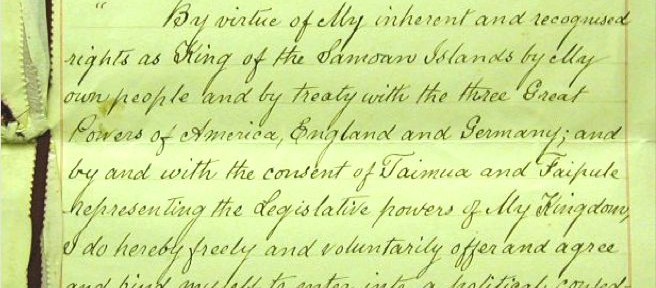 " By virtue of My inherent and recognised
rights as King of the Samoan Islands by My
own people and by treaty with the three Great
Powers of America, England and Germany; and
by and with the consent of Taimua and Faipule
representing the Legislative powers of My Kingdom,
I do hereby freely and voluntarily offer and agree
and bind myself to enter into a political confed-